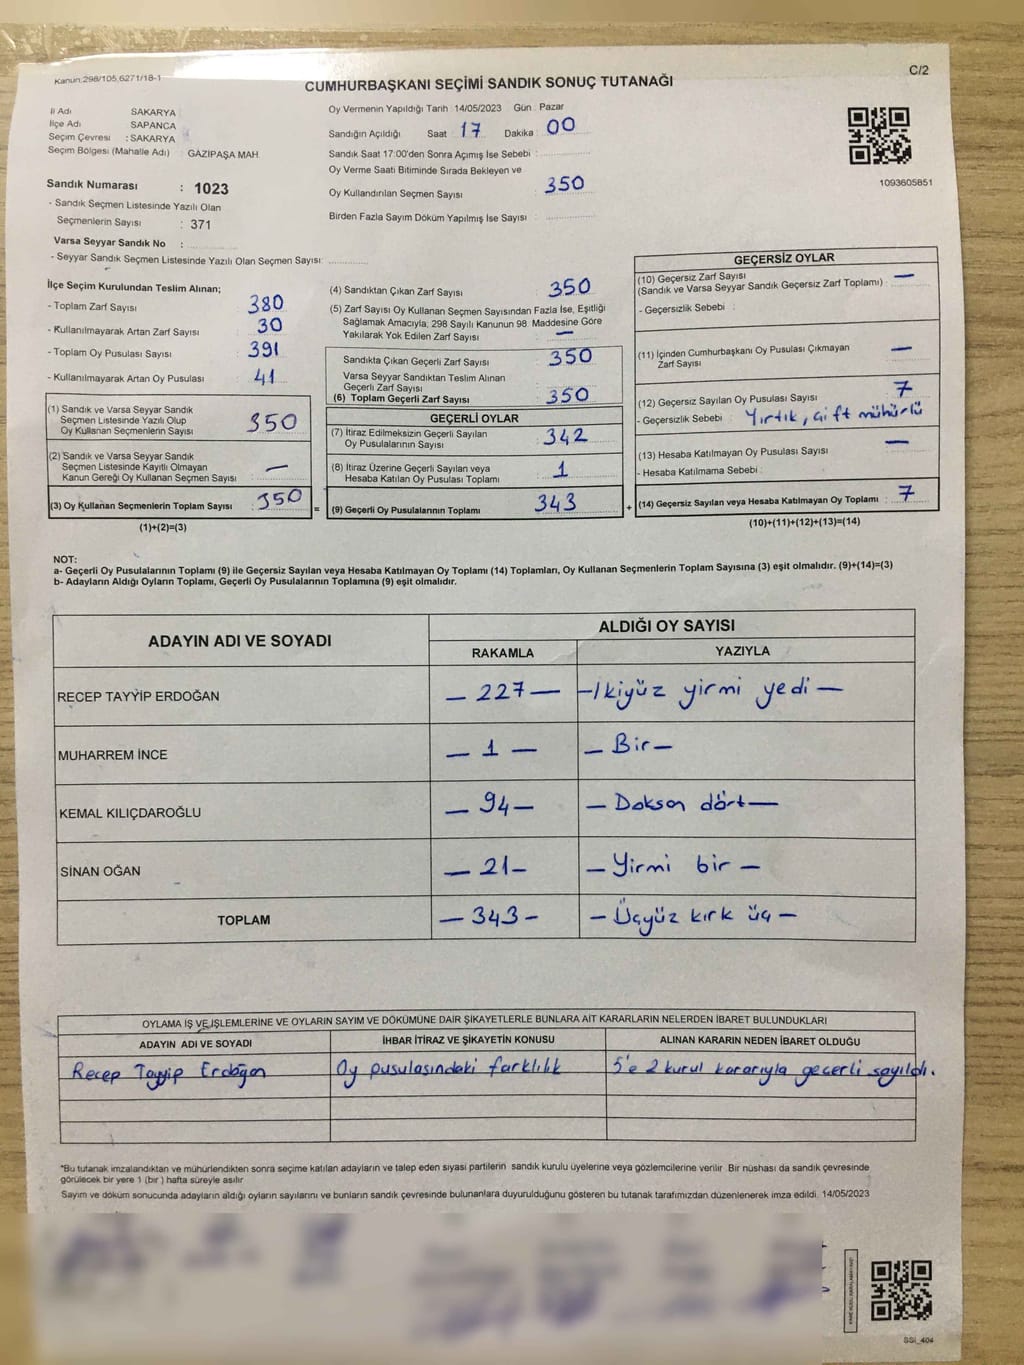 Kanun:298/105,6271/18-1
C/2
CUMHURBAŞKANI SEÇİMİ SANDIK SONUÇ TUTANAĞI
İl Adı SAKARYA
İlçe Adı SAPANCA
Seçim Çevresi : SAKARYA
Seçim Bölgesi (Mahalle Adı) : GAZİPAŞA MAH
Sandık Numarası : 1023
- Sandık Seçmen Listesinde Yazılı Olan
Seçmenlerin Sayısı : 371
Varsa Seyyar Sandık No :
- Seyyar Sandık Seçmen Listesinde Yazılı Olan Seçmen Sayısı:
Oy Vermenin Yapıldığı Tarih : 14/05/2023 Gün : Pazar
Sandığın Açıldığı Saat 17 Dakika : 00
Sandık Saat 17:00'den Sonra Açımış İse Sebebi :
Oy Verme Saati Bitiminde Sırada Bekleyen ve
Oy Kullandırılan Seçmen Sayısı : 350
Birden Fazla Sayım Döküm Yapılmış İse Sayısı :
1093605851
İlçe Seçim Kurulundan Teslim Alınan;
- Toplam Zarf Sayısı : 380
- Kullanılmayarak Artan Zarf Sayısı : 30
- Toplam Oy Pusulası Sayısı : 391
- Kullanılmayarak Artan Oy Pusulası : 41
(1) Sandık ve Varsa Seyyar Sandık
Seçmen Listesinde Yazılı Olup
Oy Kullanan Seçmenlerin Sayısı : 350
(2) Sandık ve Varsa Seyyar Sandık
Seçmen Listesinde Kayıtlı Olmayan
Kanun Gereği Oy Kullanan Seçmen Sayısı : —
(3) Oy Kullanan Seçmenlerin Toplam Sayısı : 350
(1)+(2)=(3)
=
(4) Sandıktan Çıkan Zarf Sayısı : 350
(5) Zarf Sayısı Oy Kullanan Seçmen Sayısından Fazla İse, Eşitliği
Sağlamak Amacıyla; 298 Sayılı Kanunun 98. Maddesine Göre
Yakılarak Yok Edilen Zarf Sayısı : —
Sandıkta Çıkan Geçerli Zarf Sayısı : 350
Varsa Seyyar Sandıktan Teslim Alınan
Geçerli Zarf Sayısı :
(6) Toplam Geçerli Zarf Sayısı : 350
GEÇERLİ OYLAR
(7) İtiraz Edilmeksizin Geçerli Sayılan
Oy Pusulalarının Sayısı : 342
(8) İtiraz Üzerine Geçerli Sayılan veya
Hesaba Katılan Oy Pusulası Toplamı : 1
(9) Geçerli Oy Pusulalarının Toplamı : 343
+
GEÇERSİZ OYLAR
(10) Geçersiz Zarf Sayısı
(Sandık ve Varsa Seyyar Sandık Geçersiz Zarf Toplamı) : —
- Geçersizlik Sebebi :
(11) İçinden Cumhurbaşkanı Oy Pusulası Çıkmayan
Zarf Sayısı : —
(12) Geçersiz Sayılan Oy Pusulası Sayısı : 7
- Geçersizlik Sebebi : Yırtık, çift mühürlü
(13) Hesaba Katılmayan Oy Pusulası Sayısı : —
- Hesaba Katılmama Sebebi :
(14) Geçersiz Sayılan veya Hesaba Katılmayan Oy Toplamı : 7
(10)+(11)+(12)+(13)=(14)
NOT:
a- Geçerli Oy Pusulalarının Toplamı (9) ile Geçersiz Sayılan veya Hesaba Katılmayan Oy Toplamı (14) Toplamları, Oy Kullanan Seçmenlerin Toplam Sayısına (3) eşit olmalıdır. (9)+(14)=(3)
b- Adayların Aldığı Oyların Toplamı, Geçerli Oy Pusulalarının Toplamına (9) eşit olmalıdır.
ADAYIN ADI VE SOYADI ALDIĞI OY SAYISI
RAKAMLA YAZIYLA
RECEP TAYYİP ERDOĞAN — 227 — — İkiyüz yirmi yedi —
MUHARREM İNCE — 1 — — Bir —
KEMAL KILIÇDAROĞLU — 94 — — Doksan dört —
SİNAN OĞAN — 21 — — Yirmi bir —
TOPLAM — 343 — — Üçyüz kırk üç —
OYLAMA İŞ VE İŞLEMLERİNE VE OYLARIN SAYIM VE DÖKÜMÜNE DAİR ŞİKAYETLERLE BUNLARA AİT KARARLARIN NELERDEN İBARET BULUNDUKLARI
ADAYIN ADI VE SOYADI İHBAR İTİRAZ VE ŞİKAYETİN KONUSU ALINAN KARARIN NEDEN İBARET OLDUĞU
Recep Tayyip Erdoğan Oy pusulasındaki farklılık 5'e 2 kurul kararıyla geçerli sayıldı.
*Bu tutanak imzalandıktan ve mühürlendikten sonra seçime katılan adayların ve talep eden siyasi partilerin sandık kurulu üyelerine veya gözlemcilerine verilir. Bir nüshası da sandık çevresinde
görülecek bir yere 1 (bir) hafta süreyle asılır
Sayım ve döküm sonucunda adayların aldığı oyların sayılarını ve bunların sandık çevresinde bulunanlara duyurulduğunu gösteren bu tutanak tarafımızdan düzenlenerek imza edildi. 14/05/2023
SSİ_404